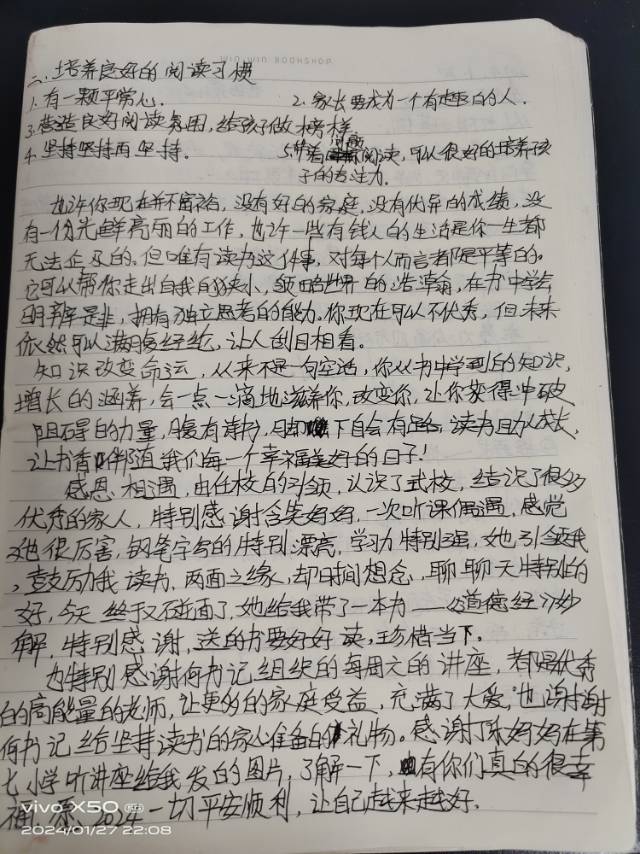 二、培养良好的阅读习惯
1. 有一颗平常心. 2. 家长要成为一个有趣的人.
3. 营造良好阅读氛围,给孩子做榜样
4. 坚持坚持再坚持. 5. 带着问题阅读,可以很好的培养孩
子的专注力.
也许你现在并不富裕,没有好的家庭,没有优异的成绩,没
有一份光鲜亮丽的工作,也许一些有钱人的生活是你一生都
无法企及的.但唯有读书这件事,对每个人而言都是平等的.
它可以帮你走出自我的狭小,领略世界的浩瀚,在书中学会
明辨是非,拥有独立思考的能力.你现在可以不优秀,但未来
依然可以满腹经纶,让人刮目相看.
知识改变命运,从来不是一句空话,你从书中学到的知识,
增长的涵养,会一点一滴地滋养你,改变你,让你获得冲破
阻碍的力量,腹有诗书,下自会有 读书助成长,
让书香伴随我们每一个幸福美好的日子!
感恩相遇,由任校的引领,认识了武校,结识了很多
优秀的家人,特别感谢含笑妈妈,一次听课偶遇,感觉
她很厉害,钢笔字写的特别漂亮,学习力特别强,她引领我
,鼓励我读书,两面之缘,却时间想念,聊聊天特别的
好,今天终于又碰面了,她给我带了一本书——《道德经》妙
解,特别感谢,送的书要好好读,珍惜当下.
也特别感谢何书记组织的每周六的讲座,都是优秀
的高能量的老师,让更多的家庭受益,充满了大爱,也谢谢
何书记给坚持读书的家人准备的礼物。感谢陈妈妈在第
七小学听讲座给我发的图片,了解一下,有你们真的很幸
福, 2024一切平安顺利,让自己越来越好.
vivo X50
2024/01/27 22:08